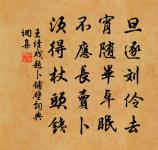 旦逐刘伶去
宵随毕卓眠
不应长卖卜
须得杖头钱
王绩戏题卜铺壁词典
网集